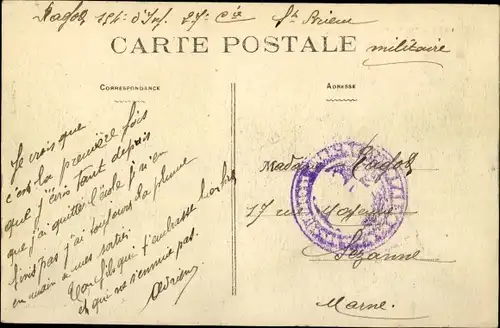 Ragot 121e d'Inf. 27e Cie St Brieuc
CARTE POSTALE militaire
CORRESPONDANCE
ADRESSE
Je crois que
c'est la première fois
que j'écris tant depuis
que j'ai quitté l'école je n'en
finis pas j'ai toujours la plume
en main à mes sorties
Ton fils qui t'adresse
et qui ne s'ennuie pas.
Adrien
Madame Ragot
17 rue
Sézanne
Marne.